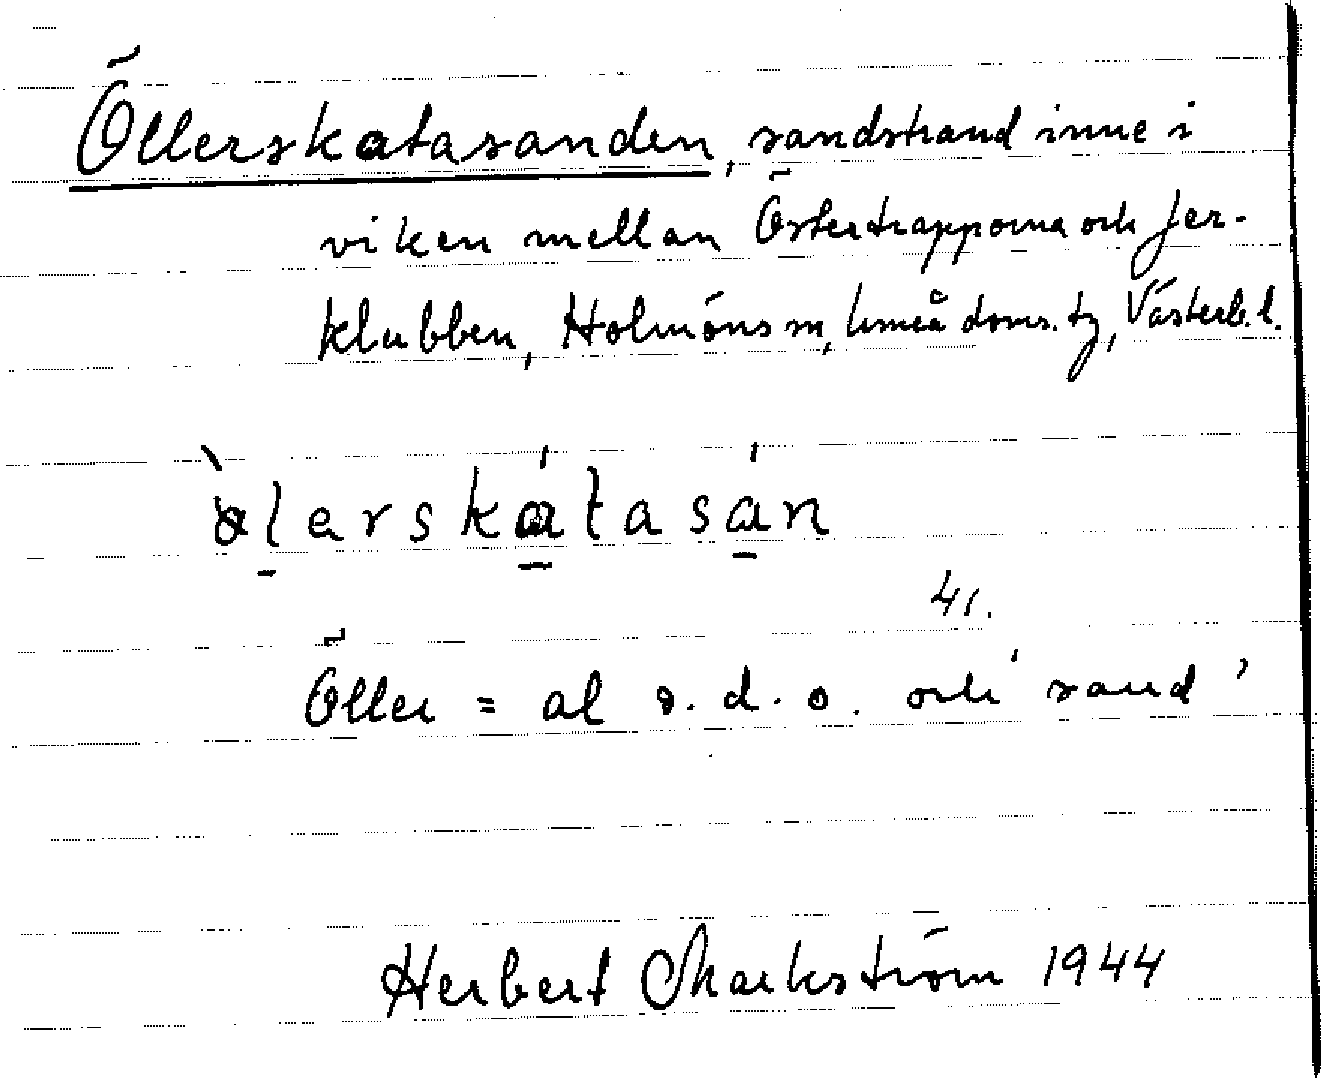 Öllerskatasanden, sandstrand inne i
viken mellan Östertrapporna och Jer-
klubben, Holmöns sn, Umeå doms. tg, Västerb. l.
ø̀lerskátasán
41.
Öller = al s. d. o. och 'sand'
Herbert Markström 1944